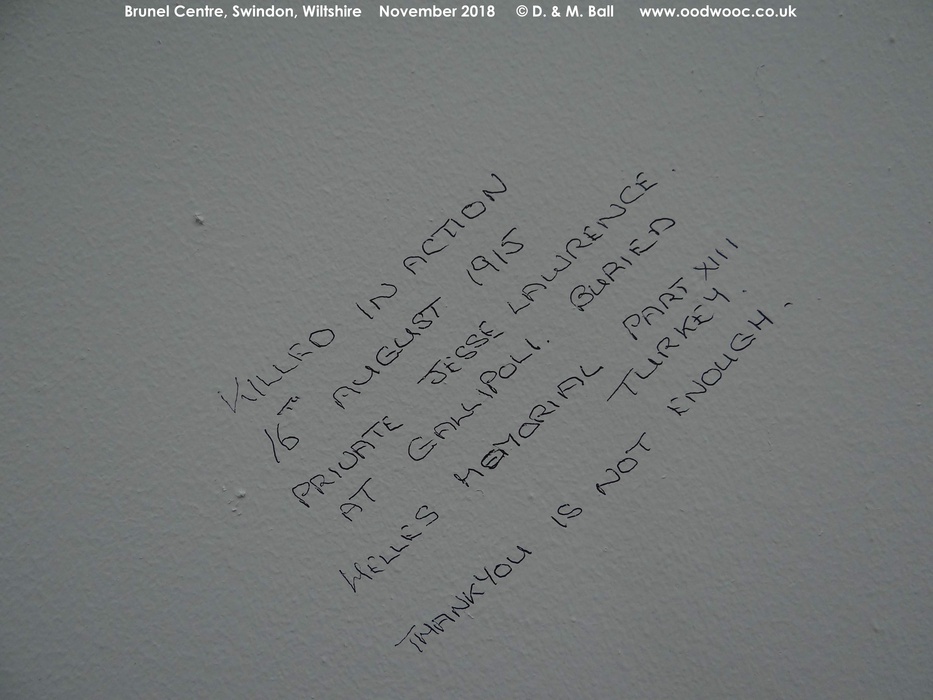 Brunel Centre, Swindon, Wiltshire November 2018 © D. & M. Ball www.oodwooc.co.uk
KILLED IN ACTION
16TH AUGUST 1915
PRIVATE JESSE LAWRENCE.
AT GALLIPOLI. BURIED
HELLES MEMORIAL PART XIII
TURKEY.
THANKYOU IS NOT ENOUGH.